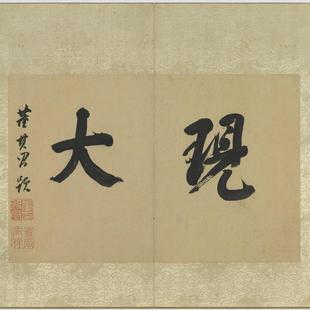 現
大
董其昌題